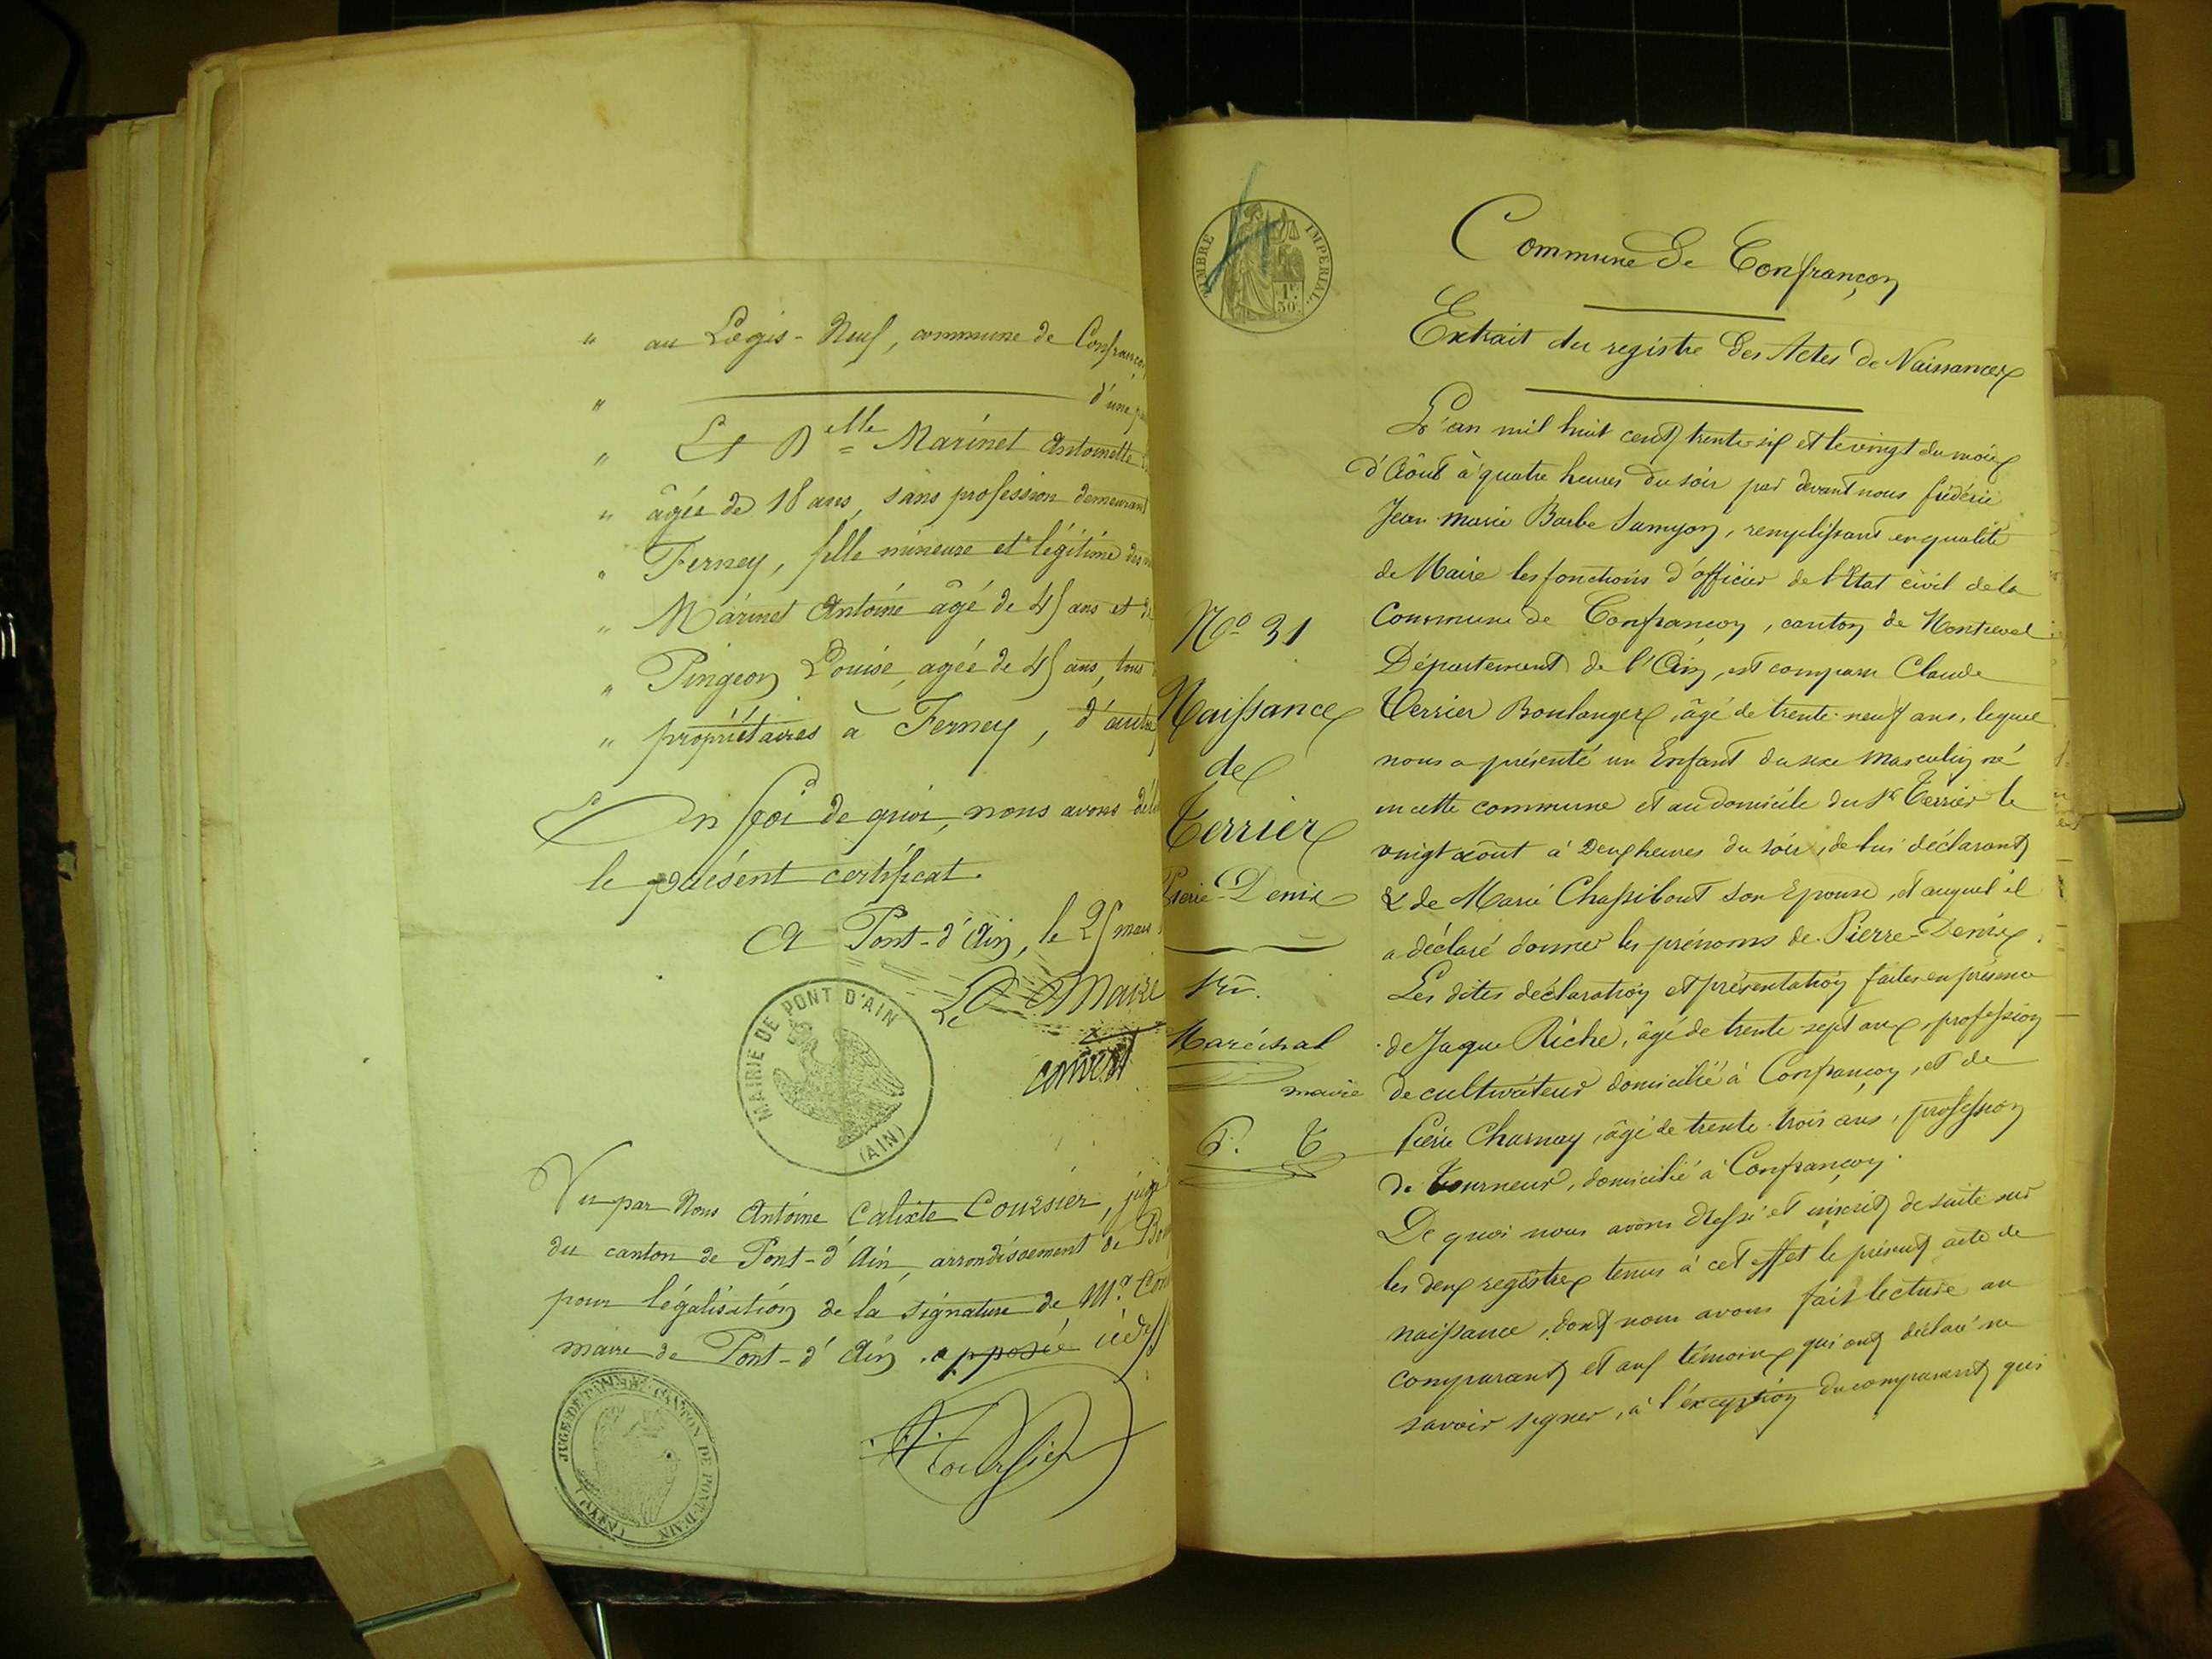 " au Logis-Neuf, commune de Confrançon
" d'une
" Et Dlle Marinet Antoinette
" âgée de 18 ans, sans profession demeurant
" Ferney, fille mineure et légitime des
" Marinet Antoine âgé de 45 ans et de
" Pingeon Louise, agée de 45 ans, tous
" propriétaires à Ferney, d'autre
En foi de quoi, nous avons
le présent certificat.
A Pont-d'Ain, le 25 mars
Le Maire
MAIRIE DE PONT D'AIN
(AIN)
Vu par Nous Antoine Calixte Coursier, juge
du canton de Pont-d'Ain, arrondissement de
pour légalisation de la signature de, Mr.
maire de Pont-d'Ain, apposée
JUGE DE PAIX DU CANTON DE PONT-D'AIN
(AIN)
Coursier
TIMBRE IMPERIAL
1F. 50C.
Commune de Confrançon
Extrait du registre des Actes de Naissances
L'an mil huit cent trente-six et le vingt du mois
d'Août à quatre heures du soir par devant nous frédéric
Jean Marie Barbe Samyon, remplissant en qualité
de Maire les fonctions d'officier de l'Etat civil de la
Commune de Confrançon, canton de Montrevel
Département de l'Ain, est comparu Claude
Terrier Boulanger, âgé de trente-neuf ans, lequel
nous a présenté un Enfant du sexe Masculin né
en cette commune et au domicile du Sr Terrier le
vingt août à Deux heures du soir, de lui déclarant
& de Marie Chassibout son Epouse, et auquel il
a déclaré donner les prénoms de Pierre-Denis.
Les dites déclaration et présentation faites en présence
de Jaque Riche, âgé de trente sept ans, profession
de cultivateur domicilié à Confrançon, et de
Pierre Charnay, âgé de trente-trois ans, profession
de tourneur, domicilié à Confrançon.
De quoi nous avons dressé et inscrit de suite sur
les deux registres tenus à cet effet le présent acte de
naissance, dont nous avons fait lecture au
comparant et aux témoins qui ont déclaré ne
savoir signer, à l'exception du comparant qui
No 31
Naissance
de
Terrier
Pierre-Denis
Maréchal
maire
P. T